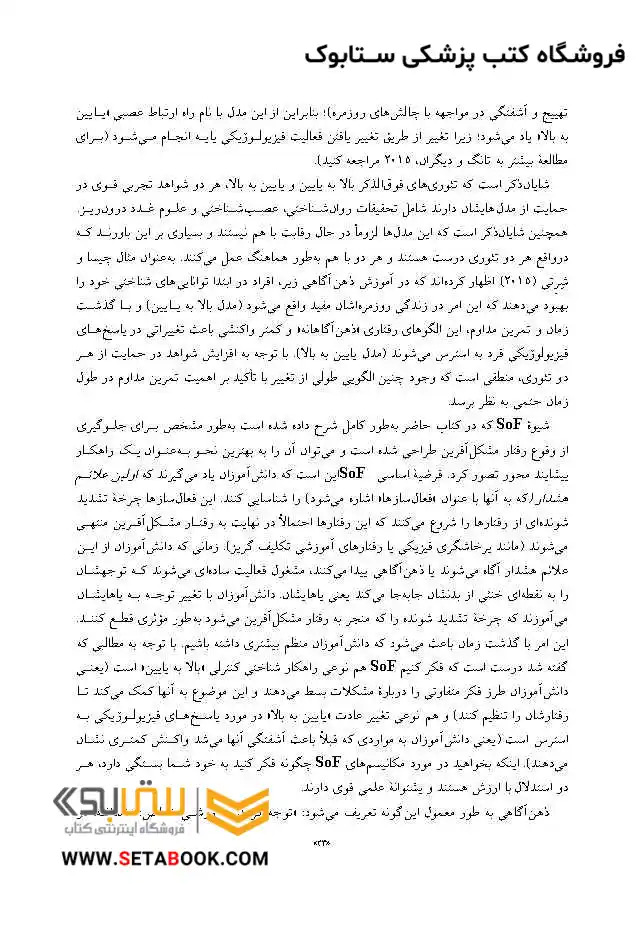 فروشگاه کتب پزشکی ستابوک
تهییج و آشفتگی در مواجهه با چالش‌های روزمره)؛ بنابراین از این مدل با نام راه ارتباط عصبی «پایین
به بالا» یاد می‌شود؛ زیرا تغییر از طریق تغییر یافتن فعالیت فیزیولوژیکی پایه انجام می‌شود (برای
مطالعهٔ بیشتر به تانگ و دیگران، ۲۰۱۵ مراجعه کنید).
شایان‌ذکر است که تئوری‌های فوق‌الذکر بالا به پایین و پایین به بالا، هر دو شواهد تجربی قوی در
حمایت از مدل‌هایشان دارند شامل تحقیقات روان‌شناختی، عصب‌شناختی و علوم غدد درون‌ریز.
همچنین شایان‌ذکر است که این مدل‌ها لزوماً در حال رقابت با هم نیستند و بسیاری بر این باورند که
درواقع هر دو تئوری درست هستند و هر دو با هم به‌طور هماهنگ عمل می‌کنند. به‌عنوان مثال چیسا و
شرتی (۲۰۱۵) اظهار کرده‌اند که در آموزش ذهن‌آگاهی زیر، افراد در ابتدا توانایی‌های شناختی خود را
بهبود می‌دهند که این امر در زندگی روزمره‌اشان مفید واقع می‌شود (مدل بالا به پایین) و با گذشت
زمان و تمرین مداوم، این الگوهای رفتاری «ذهن‌آگاهانه» و کمتر واکنشی باعث تغییراتی در پاسخ‌های
فیزیولوژیکی فرد به استرس می‌شوند (مدل پایین به بالا). با توجه به افزایش شواهد در حمایت از هر
دو تئوری، منطقی است که وجود چنین الگویی طولی از تغییر با تأکید بر اهمیت تمرین مداوم در طول
زمان حتمی به نظر برسد.
شیوهٔ SoF که در کتاب حاضر به‌طور کامل شرح داده شده است به‌طور مشخص برای جلوگیری
از وقوع رفتار مشکل‌آفرین طراحی شده است و می‌توان آن را به بهترین نحو به‌عنوان یک راهکار
پیشایند محور تصور کرد. فرضیهٔ اساسی SoF این است که دانش‌آموزان یاد می‌گیرند که اولین علائم
هشدار (که به آنها با عنوان «فعال‌سازها» اشاره می‌شود) را شناسایی کنند. این فعال‌سازها چرخهٔ تشدید
شونده‌ای از رفتارها را شروع می‌کنند که این رفتارها احتمالاً در نهایت به رفتار مشکل‌آفرین منتهی
می‌شوند (مانند پرخاشگری فیزیکی یا رفتارهای آموزشی تکلیف گریز). زمانی که دانش‌آموزان از این
علائم هشدار آگاه می‌شوند یا ذهن‌آگاهی پیدا می‌کنند، مشغول فعالیت ساده‌ای می‌شوند که توجهشان
را به نقطه‌ای خنثی از بدنشان جابه‌جا می‌کند یعنی پاهایشان. دانش‌آموزان با تغییر توجه به پاهایشان
می‌آموزند که چرخهٔ تشدید شونده را که منجر به رفتار مشکل‌آفرین می‌شود به‌طور مؤثری قطع کنند.
این امر با گذشت زمان باعث می‌شود که دانش‌آموزان منظم بیشتری داشته باشیم. با توجه به مطالبی که
گفته شد درست است که فکر کنیم SoF هم نوعی راهکار شناختی کنترلی «بالا به پایین» است (یعنی
دانش‌آموزان طرز فکر متفاوتی را دربارهٔ مشکلات بسط می‌دهند و این موضوع به آنها کمک می‌کند تا
رفتارشان را تنظیم کنند) و هم نوعی تغییر عادت «پایین به بالا» در مورد پاسخ‌های فیزیولوژیکی به
استرس است (یعنی دانش‌آموزان به مواردی که قبلاً باعث آشفتگی آنها می‌شد واکنش کمتری نشان
می‌دهند). اینکه بخواهید در مورد مکانیسم‌های SoF چگونه فکر کنید به خود شما بستگی دارد، هر
دو استدلال با ارزش هستند و پشتوانهٔ علمی قوی دارند.
ذهن‌آگاهی به طور معمول این‌گونه تعریف می‌شود: «توجه
«۲۳»
ستابوک
فروشگاه اینترنتی کتاب
WWW.SETABOOK.COM